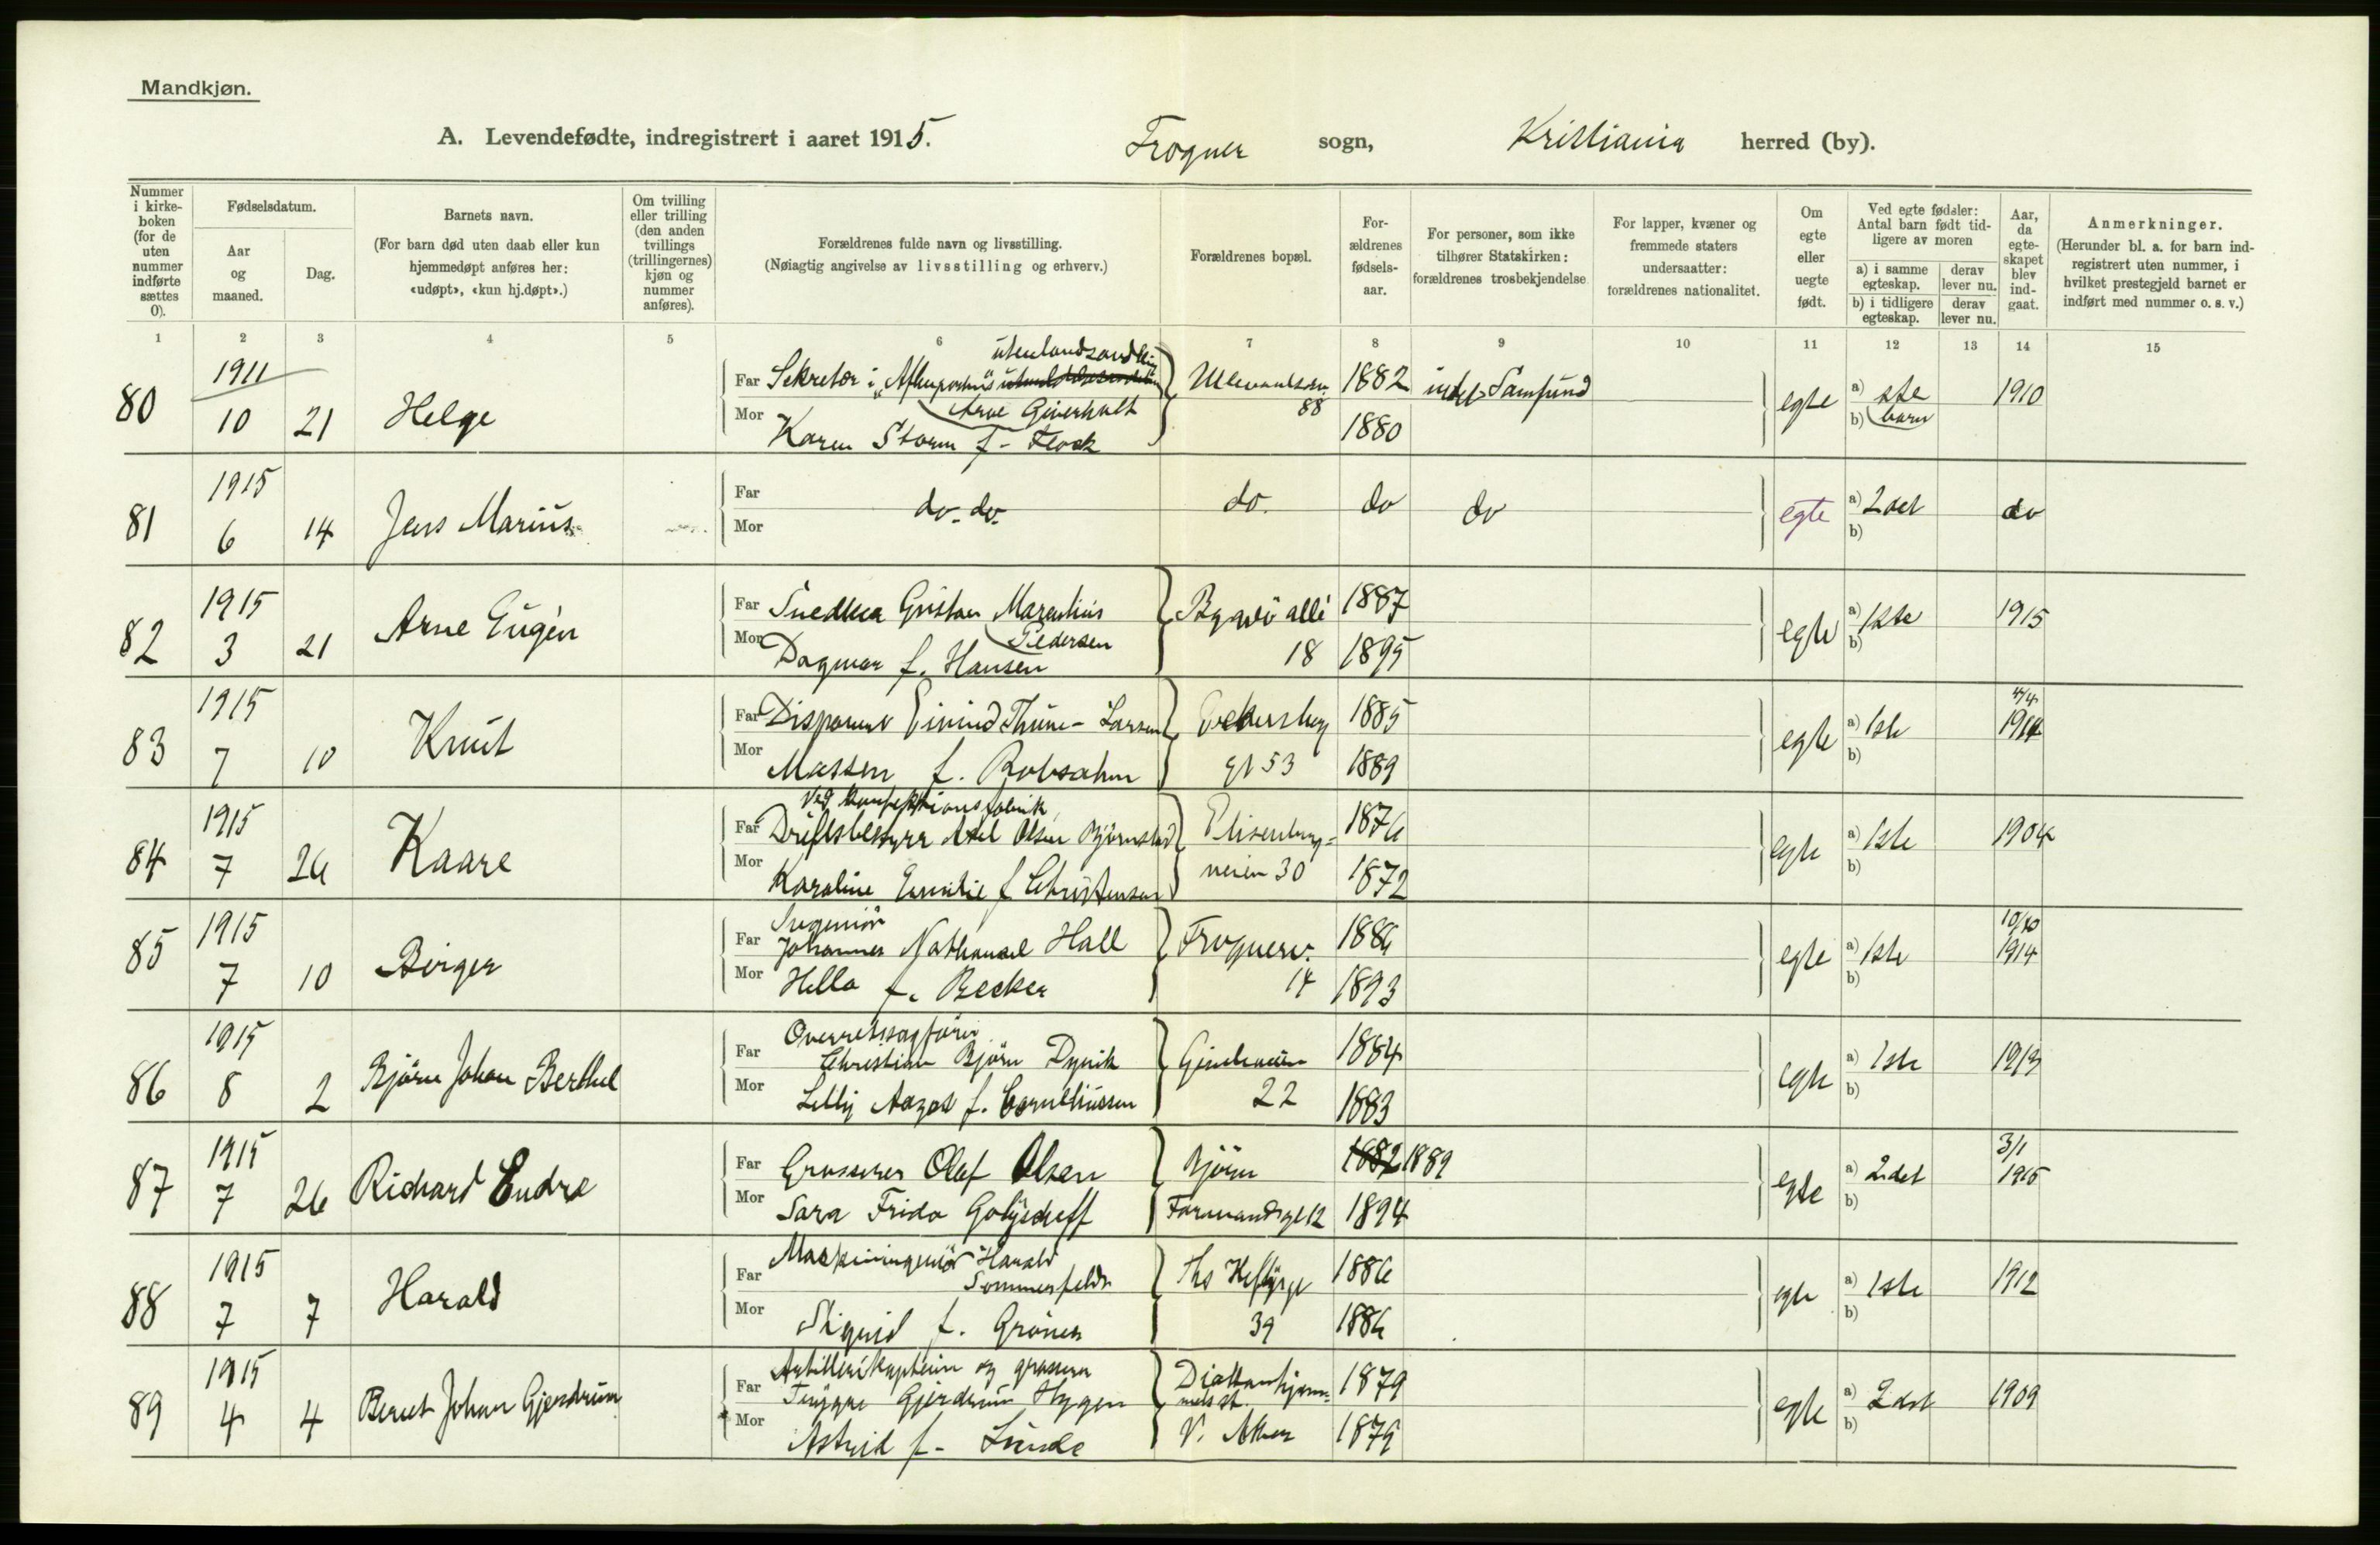 Mandkjøn.
A. Levendefødte, indregistrert i aaret 1915. Frogner sogn, Kristiania herred (by).
Nummer i kirke-boken (for de uten nummer indførte sættes 0).
Fødselsdatum.
Aar og maaned.
Dag.
Barnets navn.
(For barn død uten daab eller kun hjemmedøpt anføres her: «udøpt», «kun hj.døpt».)
Om tvilling eller trilling (den anden tvillings (trillingernes) kjøn og nummer anføres).
Forældrenes fulde navn og livsstilling.
(Nøiagtig angivelse av livsstilling og erhverv.)
Forældrenes bopæl.
For-ældrenes fødsels-aar.
For personer, som ikke tilhører Statskirken: forældrenes trosbekjendelse
For lapper, kvæner og fremmede staters undersaatter: forældrenes nationalitet.
Om egte eller uegte født.
Ved egte fødsler: Antal barn født tid-ligere av moren
a) i samme egteskap.
derav lever nu.
b) i tidligere egteskap.
derav lever nu.
Aar, da egte-skapet blev ind-gaat.
Anmerkninger.
(Herunder bl. a. for barn ind-registrert uten nummer, i hvilket prestegjeld barnet er indført med nummer o. s. v.)
1 2 3 4 5 6 7 8 9 10 11 12 13 14 15
80 1911 10 21 Helge
Far Sekretær i
Arne Giverholt
Mor Karen Storm f. Flock
88
1882 1880
Samfund
egte a) 1ste b) barn 1910
81 1915 6 14 Jens Marius
Far Mor do. do. do. do do egte a) 2det b) do
82 1915 3 21 Arne Eugén
Far Snedker Gustav Marentius
Pedersen
Mor Dagmar f. Hansen
Bygdö allé 18
1887 1895
egte a) 1ste b) 1915
83 1915 7 10 Knut
Far Disponent Eivind Thune-Larsen
Mor Massen f. Robsahm
Eckersberg gt 53
1885 1889
egte a) 1ste b) 4/4 1914
84 1915 7 26 Kaare
ved konfektionsfabrik
Far Driftsbestyrer Axel Olsen Björnstad
Mor Karoline Emilie f Christensen
Elisenberg-veien 30
1876 1872
egte a) 1ste b) 1904
85 1915 7 10 Birger
Ingeniör
Far Johannes Nathanael Hall
Mor Hella f. Becker
Frognerv. 14
1886 1893
egte a) 1ste b) 10/10 1914
86 1915 8 2 Björn Johan Berthel
Overretssagförer
Far Christian Björn Dyvik
Mor Lilly Aagot f. Corneliussen
22
1884 1883
egte a) 1ste b) 1913
87 1915 7 26 Richard Endre
Far Grosserer Olaf Olsen
Mor Sara Frida Golijscheff
Björn Farmandsgt 12
1882 1889 1894
egte a) 2det b) 3/1 1915
88 1915 7 7 Harald
Far Maskiningeniör Harald
Sommerfeldt
Mor Sigrid f. Gröner
Ths Heftyesgt 39
1886 1886
egte a) 1ste b) 1912
89 1915 4 4 Bernt Johan Gjerdrum
Artillerikaptein og grosserer
Far Trygve Gjerdrum Hygen
Mor Astrid f. Linde
Diakonhjem-mets st. V. Aker
1879 1879
egte a) 2det b) 1909